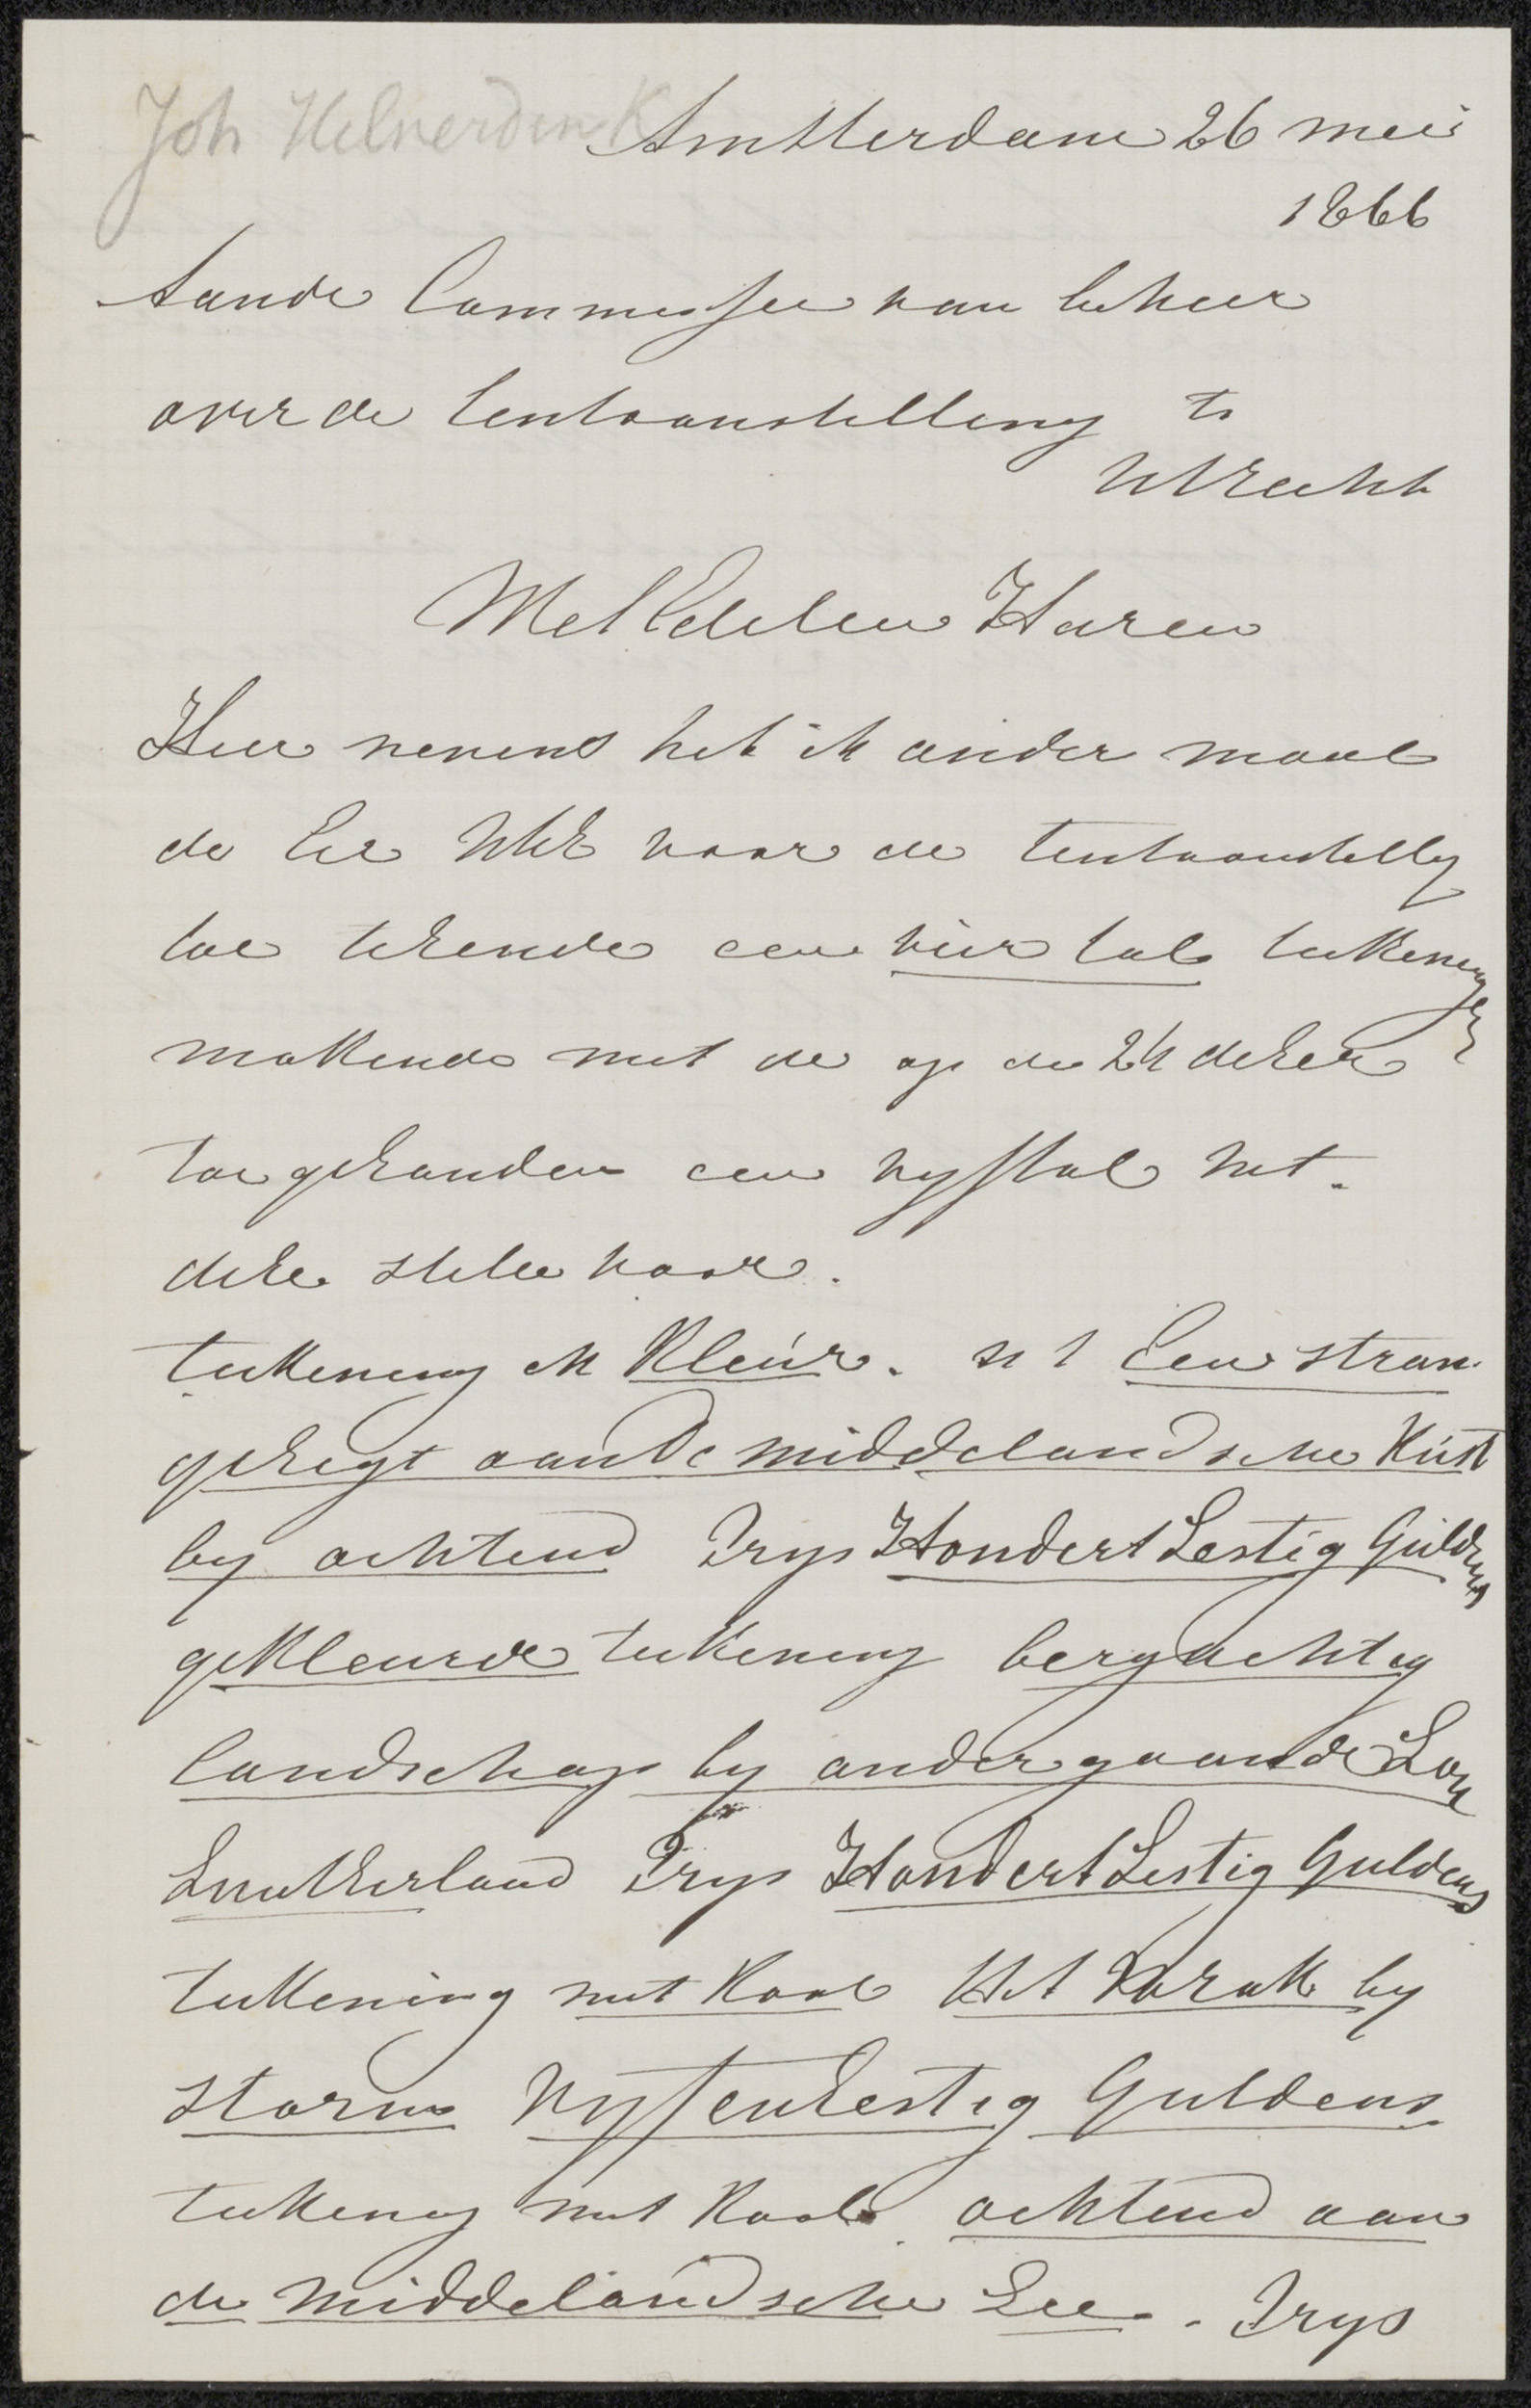 Joh Hilverdink
Amsterdam 26 mei
1866
Aande Commissie van beheer
over de tentoonstelling te
Utrecht
Wel Edelen Heren
Hier nevens heb ik ander maal
de Eer voor de tentoonstelling
toe tezende een vier tal teekeningen
makende met de op de 24 dezer
toe gezonden een vyftal het
deze stelle voor.
teekening in Kleur. n 1 Een stran
gezigt aan de middelandsche Kust
by ochtend Prys Hondert Sestig Guldens
gekleurde teekening bergachtig
landschap by ondergaande Zon
Zwitzerland Prys Hondert Sestig Guldens
teekening met Kool Het by
storm Vyfenzestig Guldens
teekening met Kool ochtend aan
de Middelandsche Zee. Prys